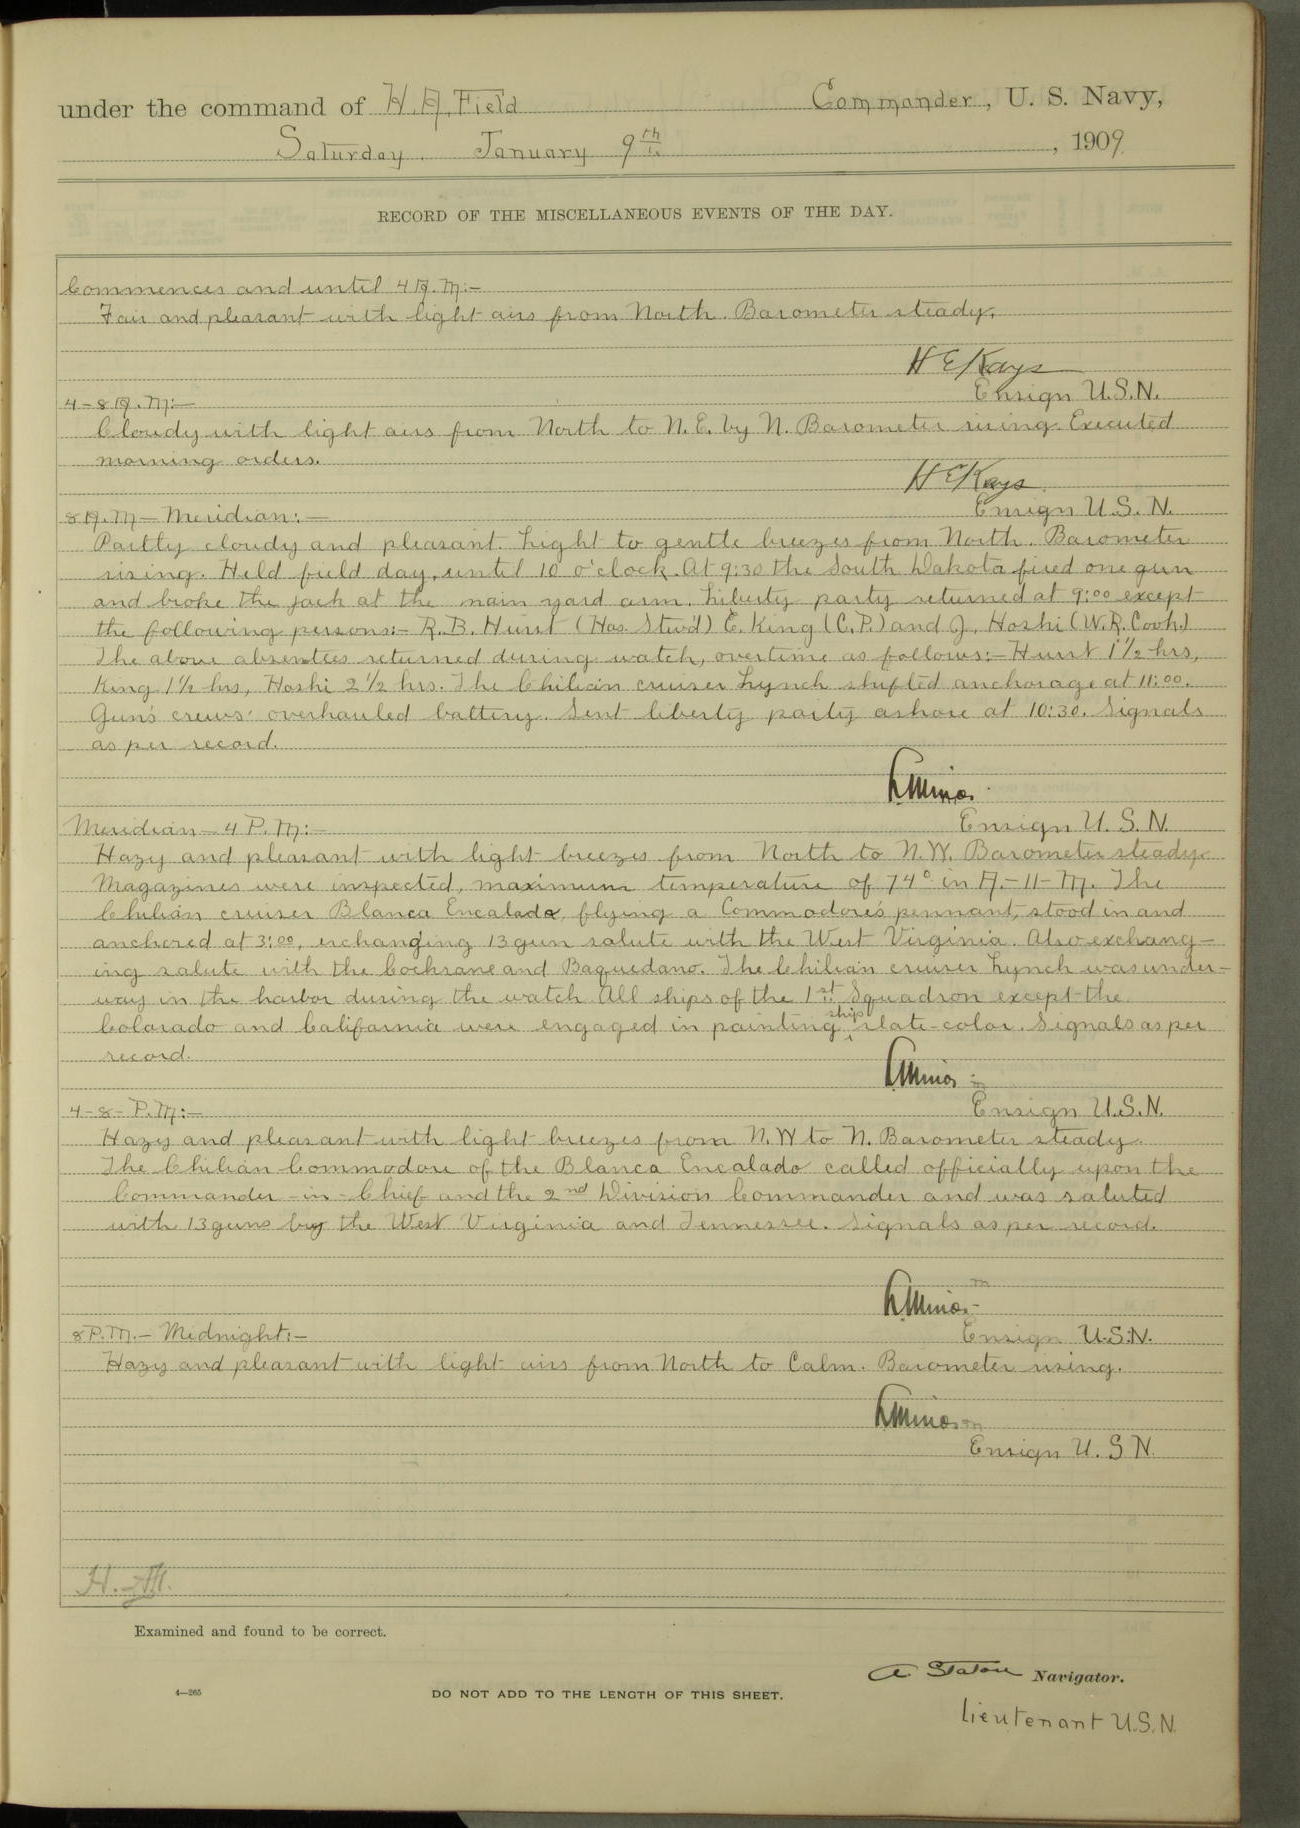 under the command of H. A. Field Commander, U. S. Navy,
Saturday. January 9th, 1909
RECORD OF THE MISCELLANEOUS EVENTS OF THE DAY.
Commences and until 4 A.M:-
Fair and pleasant with light airs from North. Barometer steady.
H E Kays
Ensign U.S.N.
4-8 A.M:-
Cloudy with light airs from North to N.E. by N. Barometer rising. Executed
morning orders.
H E Kays
Ensign U.S.N.
8 A.M - Meridian:-
Partly cloudy and pleasant. Light to gentle breezes from North. Barometer
rising. Held field day, until 10 o'clock. At 9:30 the South Dakota fired one gun
and broke the jack at the main yard arm. Liberty party returned at 9:00 except
the following persons:- R.B. Hurst (Hos. Stew'd) E. King (C.P.) and J. Hoshi (W.R. Cook.)
The above absentees returned during watch, overtime as follows:- Hurst 1 1/2 hrs,
King 1 1/2 hrs, Hoshi 2 1/2 hrs. The Chilian cruiser Lynch shifted anchorage at 11:00.
Gun's crews' overhauled battery. Sent liberty party ashore at 10:30. Signals
as per record.
Ensign U.S.N.
Meridian - 4 P.M:-
Hazy and pleasant with light breezes from North to N.W. Barometer steady.
Magazines were inspected, maximum temperature of 74° in A-11-M. The
Chilian cruiser Blanca Encalada, flying a Commodore's pennant, stood in and
anchored at 3:00, exchanging 13 gun salute with the West Virginia. Also exchang-
ing salute with the Cochrane and Baquedano. The Chilian cruiser Lynch was under-
way in the harbor during the watch. All ships of the 1st Squadron except the
Colorado and California were engaged in painting ship slate-color. Signals as per
record.
Ensign U.S.N.
4-8- P.M:-
Hazy and pleasant with light breezes from N.W to N. Barometer steady.
The Chilian Commodore of the Blanca Encalado called officially upon the
Commander-in-Chief and the 2nd Division Commander and was saluted
with 13 guns by the West Virginia and Tennessee. Signals as per record.
Ensign U.S.N.
8 P.M.- Midnight:-
Hazy and pleasant with light airs from North to Calm. Barometer rising.
Ensign U.S.N.
Examined and found to be correct.
A Staton Navigator.
4—265
DO NOT ADD TO THE LENGTH OF THIS SHEET.
Lieutenant U.S.N.